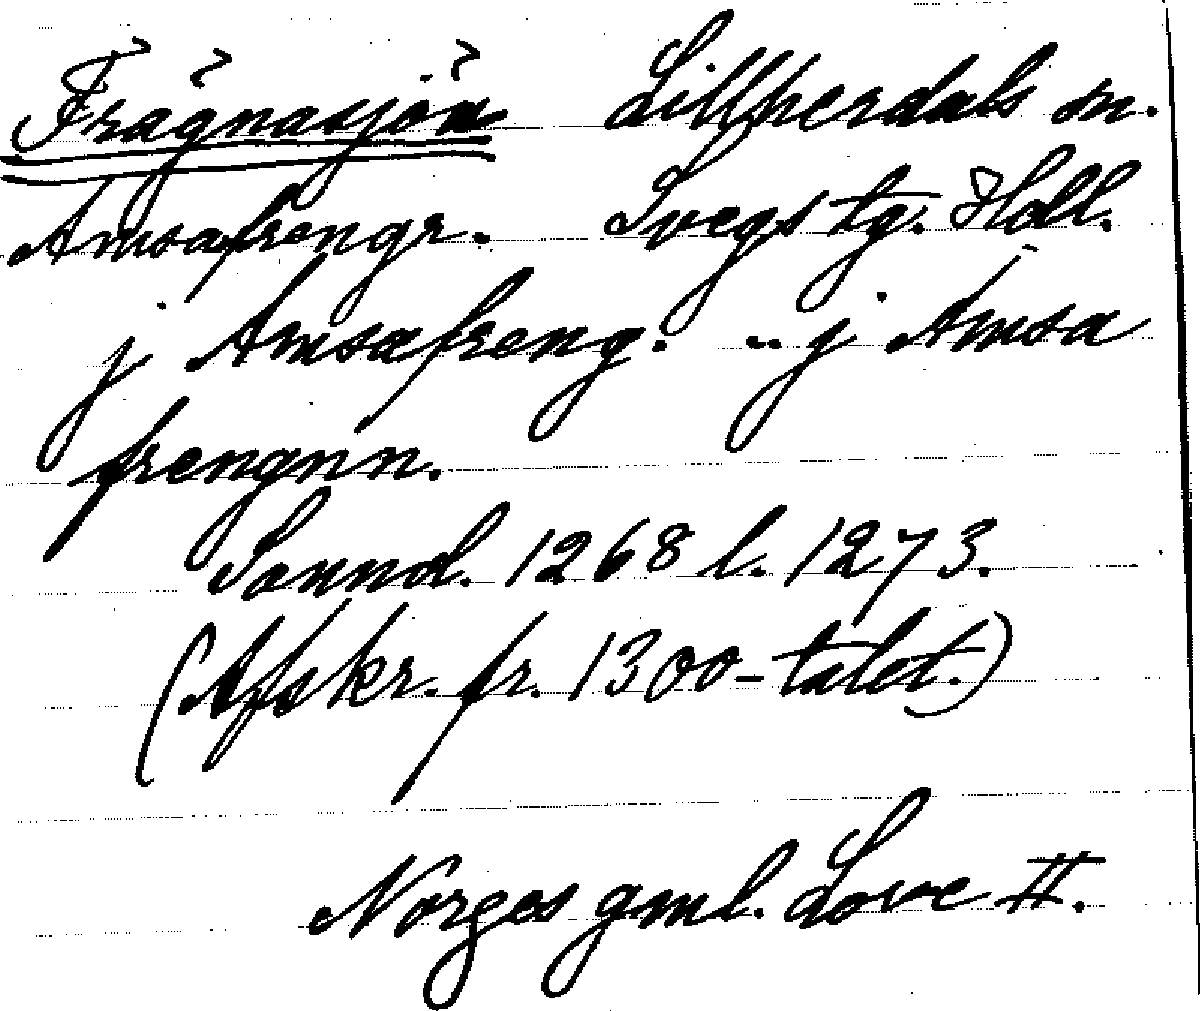 Frägnasjön Lillherdals sn.
Amsafrengr. Svegs tg. Häll.
j Amsafreng: .. j Amsa
frengnn.
Sannol. 1268 l. 1273.
(Afskr. fr. 1300-talet.)
Norges gml. Love II.